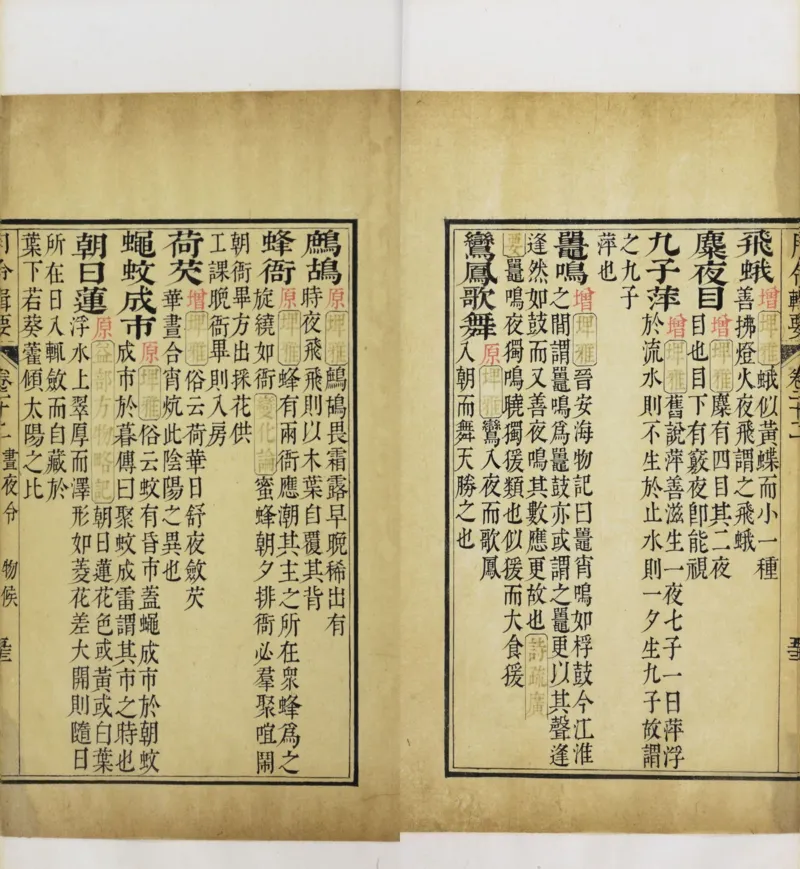 月令輯要 卷二十二
飛蛾 增埤雅蛾似黃蝶而小一種
善拂燈火夜飛謂之飛蛾
麋夜目 增埤雅麋有四目其二夜
目也目下有竅夜卽能視
九子萍 增埤雅舊說萍善滋生一夜七子一日萍浮
於流水則不生於止水則一夕生九子故謂
之九子
萍也
鼉鳴 增埤雅晉安海物記曰鼉宵鳴如桴鼓今江淮
之間謂鼉鳴爲鼉鼓亦或謂之鼉更以其聲逢
逢然如鼓而又善夜鳴其數應更故也詩疏廣
要鼉鳴夜獨鳴曉獨猨類也似猨而大食猨
鸞鳳歌舞 原埤雅鸞入夜而歌鳳
入朝而舞天勝之也
鷓鴣 原埤雅鷓鴣畏霜露早晚稀出有
時夜飛飛則以木葉自覆其背
蜂衙 原埤雅蜂有兩衙應潮其主之所在衆蜂爲之
旋繞如衙變化論蜜蜂朝夕排衙必羣聚喧鬧
朝衙畢方出採花供
工課晚衙畢則入房
荷芡 增埤雅俗云荷華日舒夜斂芡
華晝合宵炕此陰陽之異也
蠅蚊成市 原埤雅俗云蚊有昏市蓋蠅成市於朝蚊
成市於暮傳曰聚蚊成雷謂其市之時也
朝日蓮 原益部方物略記朝日蓮花色或黃或白葉
浮水上翠厚而澤形如菱花差大開則隨日
所在日入輒斂而自藏於
葉下若葵藿傾太陽之比
月令輯要 卷二十二 晝夜令 物候